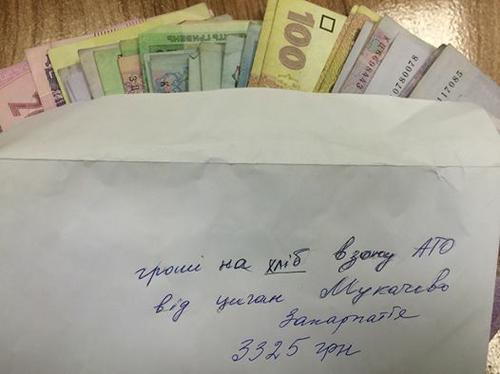 100
ХД7698443
0780078
117085
гроші на хліб в зону АТО
від циган Мукачево
Закарпаття
3325 грн